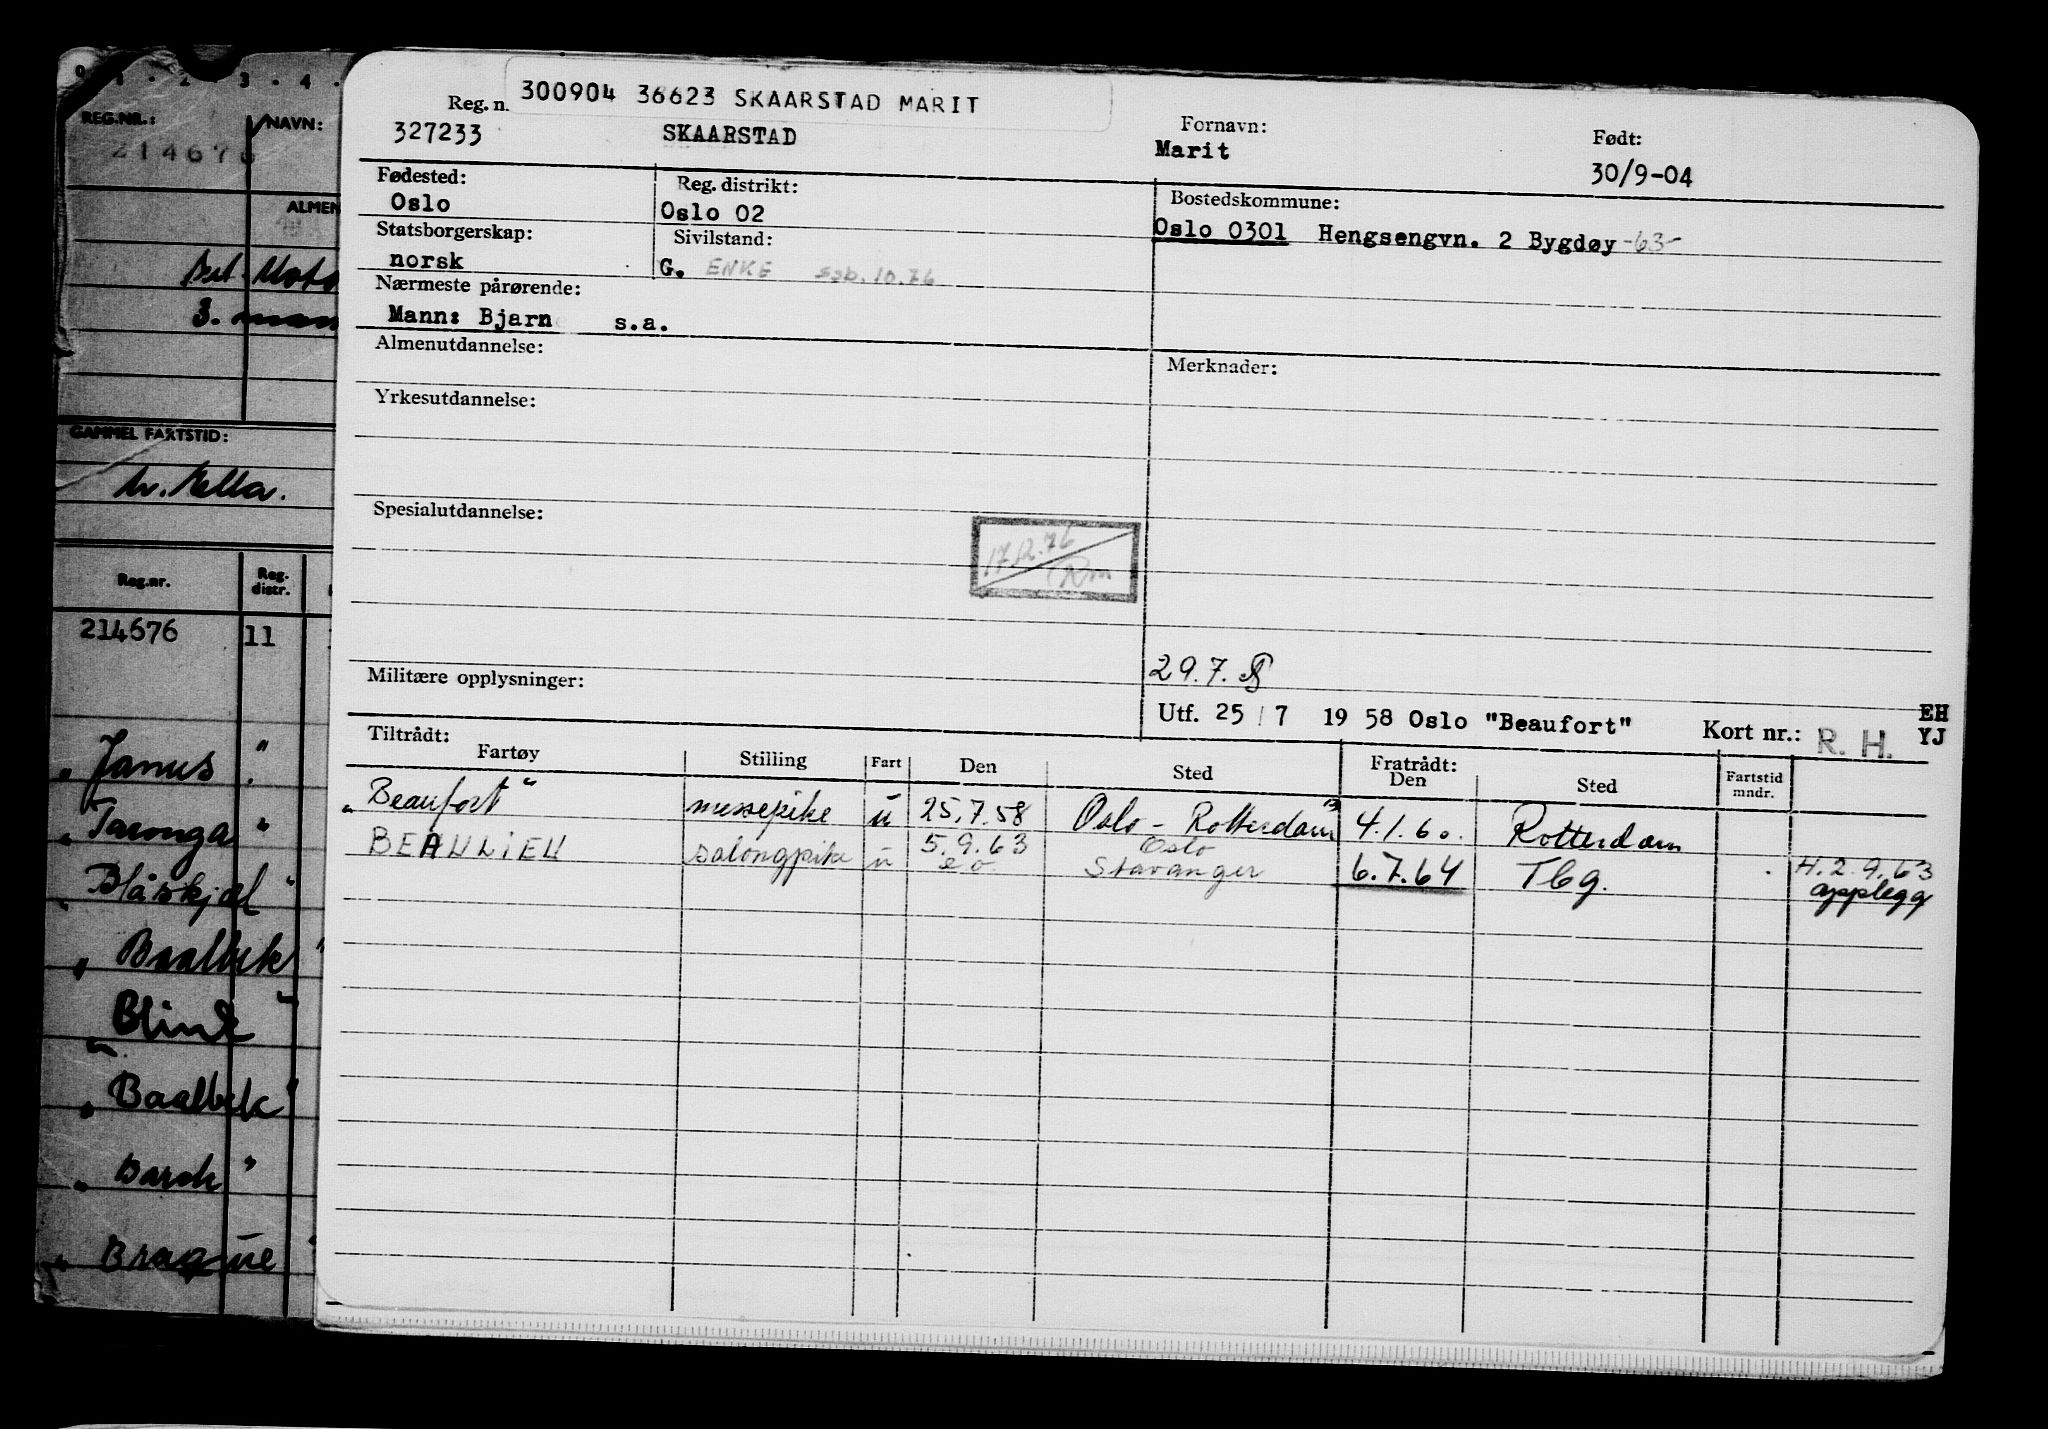 0 1 . 2 . 3 . 4 .
REG.NR.: NAVN:
214676
ALMEN
3.
GAMMEL FARTSTID:
Reg.nr. Reg. distr.
214676 11
"Janus"
"Taronga"
"Blåskjel"
"Baalbek"
"Blink"
"Baalbek"
"Barok"
"Braque"
300904 36623 SKAARSTAD MARIT
Reg. n. Fornavn: Født:
327233 SKAARSTAD Marit 30/9-04
Fødested: Reg. distrikt: Bostedskommune:
Oslo Oslo 02 Oslo 0301 Hengsengvn. 2 Bygdøy -63-
Statsborgerskap: Sivilstand:
norsk G. ENKE ssb.10.76
Nærmeste pårørende:
Mann: Bjarn s.a.
Almenutdannelse: Merknader:
Yrkesutdannelse:
Spesialutdannelse:
17.12.76
29.7.
Militære opplysninger:
Utf. 25/7 1958 Oslo "Beaufort" Kort nr.: R. H. EH
YJ
Tiltrådt: Fratrådt:
Fartøy Stilling Fart Den Sted Den Sted Fartstid mndr.
"Beaufort" messepike u 25.7.58 Oslo - Rotterdam 4.1.60. Rotterdam
BEAULIEU salongpike u 5.9.63 Oslo
e o Stavanger 6.7.64 Tbg. H.2.9.63
opplegg